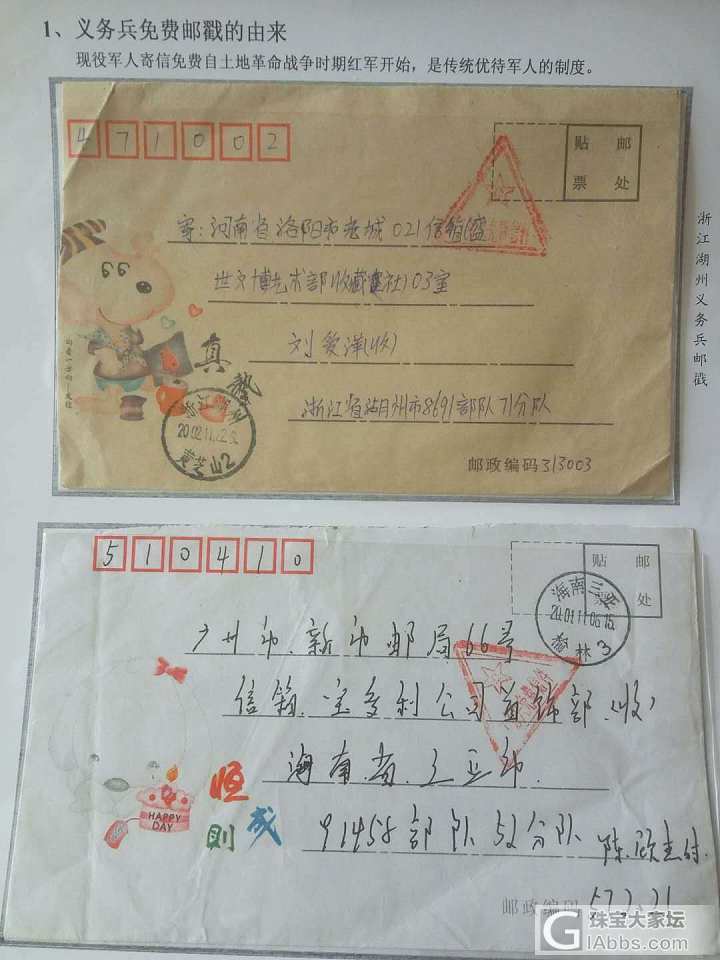 1、义务兵免费邮戳的由来
现役军人寄信免费自土地革命战争时期红军开始，是传统优待军人的制度。
471002
贴 邮
票 处
寄:河南省洛阳市老城021信箱(盛
世文博艺术部收藏社)03室
刘爱洋(收)
浙江省湖州市8691部队71分队
邮政编码313003
真
挚
浙江湖州
黄芝山2
浙江湖州义务兵邮戳
510410
贴 邮
票 处
海南三亚
2001.11.06.15
林 3
广州市.新市邮局66号
信箱.宝多利公司首饰部(收)
海南省.三亚市.
91458部队52分队
邮政编码
恒
则 成
HAPPY
DAY
珠宝大家坛
IAbbs.com